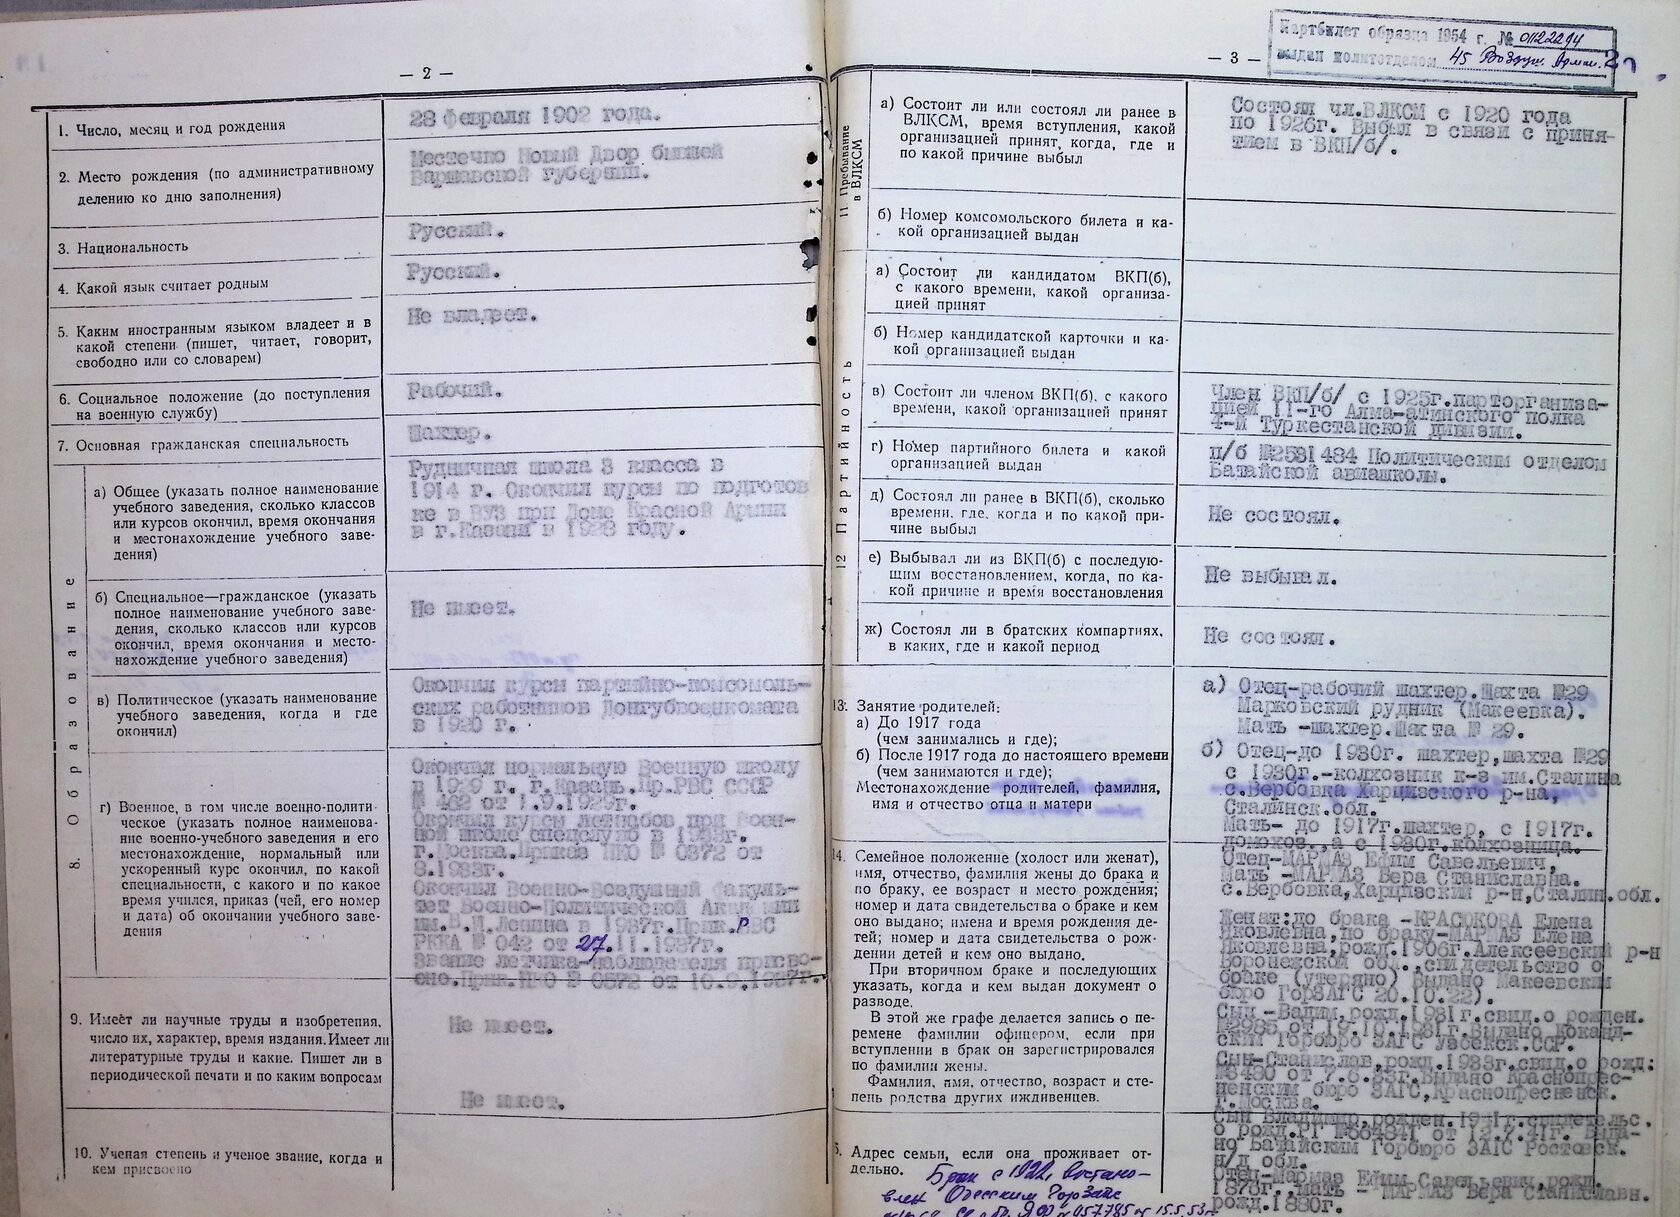 — 2 —
1. Число, месяц и год рождения
28 февраля 1902 года.
2. Место рождения (по административному
делению ко дню заполнения)
Местечко Новый Двор бывшей
Варшавской губернии.
3. Национальность
Русский.
4. Какой язык считает родным
Русский.
5. Каким иностранным языком владеет и в
какой степени (пишет, читает, говорит,
свободно или со словарем)
Не владеет.
6. Социальное положение (до поступления
на военную службу)
Рабочий.
7. Основная гражданская специальность
Шахтер.
8. Образование
а) Общее (указать полное наименование
учебного заведения, сколько классов
или курсов окончил, время окончания
и местонахождение учебного заве-
дения)
Рудничная школа 3 класса в
1914 г. Окончил курсы по подготов
ке в ВУЗ при Доме Красной Армии
в г.Казани в 1928 году.
б) Специальное—гражданское (указать
полное наименование учебного заве-
дения, сколько классов или курсов
окончил, время окончания и место-
нахождение учебного заведения)
Не имеет.
в) Политическое (указать наименование
учебного заведения, когда и где
окончил)
Окончил курсы партийно-комсомоль-
ских работников Донгубвоенкомата
в 1920 г.
г) Военное, в том числе военно-полити-
ческое (указать полное наименова-
ние военно-учебного заведения и его
местонахождение, нормальный или
ускоренный курс окончил, по какой
специальности, с какого и по какое
время учился, приказ (чей, его номер
и дата) об окончании учебного заве-
дения
Окончил нормальную Военную школу
в 1929 г., г.Казань.Пр.РВС СССР
№ 462 от 1.9.1929г.
Окончил курсы летнабов при Воен-
ной школе спецслуб в 1933г.
г.Москва.Приказ НКО № 0372 от
3.1933г.
Окончил Военно-Воздушный факуль-
тет Военно-Политической Академии
им.В.И.Ленина в 1937г.Прик.РВС
РККА № 042 от 27.11.1937г.
Звание летчика-наблюдателя присво-
ено.Прик.НКО № 0372 от 10.9.1937г.
9. Имеет ли научные труды и изобретения,
число их, характер, время издания. Имеет ли
литературные труды и какие. Пишет ли в
периодической печати и по каким вопросам
Не имеет.
Не имеет.
10. Ученая степень и ученое звание, когда и
кем присвоено
— 3 —
Партбилет образца 1954 г. № 01122294
выдан политотделом 45 Воздуш. Армии.
11 Пребывание
в ВЛКСМ
а) Состоит ли или состоял ли ранее в
ВЛКСМ, время вступления, какой
организацией принят, когда, где и
по какой причине выбыл
Состоял чл.ВЛКСМ с 1920 года
по 1926г. Выбыл в связи с приня-
тием в ВКП/б/.
б) Номер комсомольского билета и ка-
кой организацией выдан
12 Партийность
а) Состоит ли кандидатом ВКП(б),
с какого времени, какой организа-
цией принят
б) Номер кандидатской карточки и ка-
кой организацией выдан
в) Состоит ли членом ВКП(б), с какого
времени, какой организацией принят
Член ВКП/б/ с 1925г.парторганиза-
цией 11-го Алма-атинского полка
4-й Туркестанской дивизии.
г) Номер партийного билета и какой
организацией выдан
п/б №2581484 Политическим отделом
Батайской авиашколы.
д) Состоял ли ранее в ВКП(б), сколько
времени, где, когда и по какой при-
чине выбыл
Не состоял.
е) Выбывал ли из ВКП(б) с последую-
щим восстановлением, когда, по ка-
кой причине и время восстановления
Не выбывал.
ж) Состоял ли в братских компартиях,
в каких, где и какой период
Не состоял.
13. Занятие родителей:
а) До 1917 года
(чем занимались и где);
б) После 1917 года до настоящего времени
(чем занимаются и где);
Местонахождение родителей, фамилия,
имя и отчество отца и матери
а) Отец-рабочий шахтер.Шахта №29
Марковский рудник (Макеевка).
Мать -шахтер.Шахта № 29.
б) Отец-до 1930г. шахтер,шахта №29
с 1930г.-колхозник к-з им.Сталина
с.Вербовка Харцизского р-на,
Сталинск.обл.
Мать- до 1917г.шахтер, с 1917г.
домохоз.,а с 1930г.колхозница.
Отец-МАРМАЗ Ефим Савельевич,
Мать -МАРМАЗ Вера Станиславна.
с.Вербовка,Харцизский р-н,Сталин.обл.
14. Семейное положение (холост или женат),
имя, отчество, фамилия жены до брака и
по браку, ее возраст и место рождения;
номер и дата свидетельства о браке и кем
оно выдано; имена и время рождения де-
тей; номер и дата свидетельства о рож-
дении детей и кем оно выдано.
При вторичном браке и последующих
указать, когда и кем выдан документ о
разводе.
В этой же графе делается запись о пе-
ремене фамилии офицером, если при
вступлении в брак он зарегистрировался
по фамилии жены.
Фамилия, имя, отчество, возраст и сте-
пень родства других иждивенцев.
Женат:до брака -КРАСЮКОВА Елена
Яковлевна,по браку-МАРМАЗ Елена
Яковлевна,рожд.1906г.Алексеевский р-н
Воронежской обл.,свидетельство о
браке (утеряно) Выдано Макеевским
бюро ГорЗАГС 20.10.22).
Сын -Вадим,рожд.1931г.свид.о рожден.
№2985 от 19.10.1931г.Выдано Коканд-
ским Горбюро ЗАГС Узбекск.ССР.
Сын-Станислав,рожд.1933г.свид.о рожд:
№6430 от 7.6.33г.Выдано Краснопрес-
ненским бюро ЗАГС,Краснопресненск.
г.Москва.
Сын Владимир,рожден.1941г.свидетельс.
о рожд.РГ №664841 от 12.7.41г. Выда-
но Батайским Горбюро ЗАГС Ростовск.
н/Д обл.
Отец-Мармаз Ефим Савельевич,рожд.
1878г.,мать - МАРМАЗ Вера Станиславн.
рожд.1880г.
5. Адрес семьи, если она проживает от-
дельно.
Брак с 1922г. востано-
влен Одесским ГорЗагс
057785 от 15.5.53г.